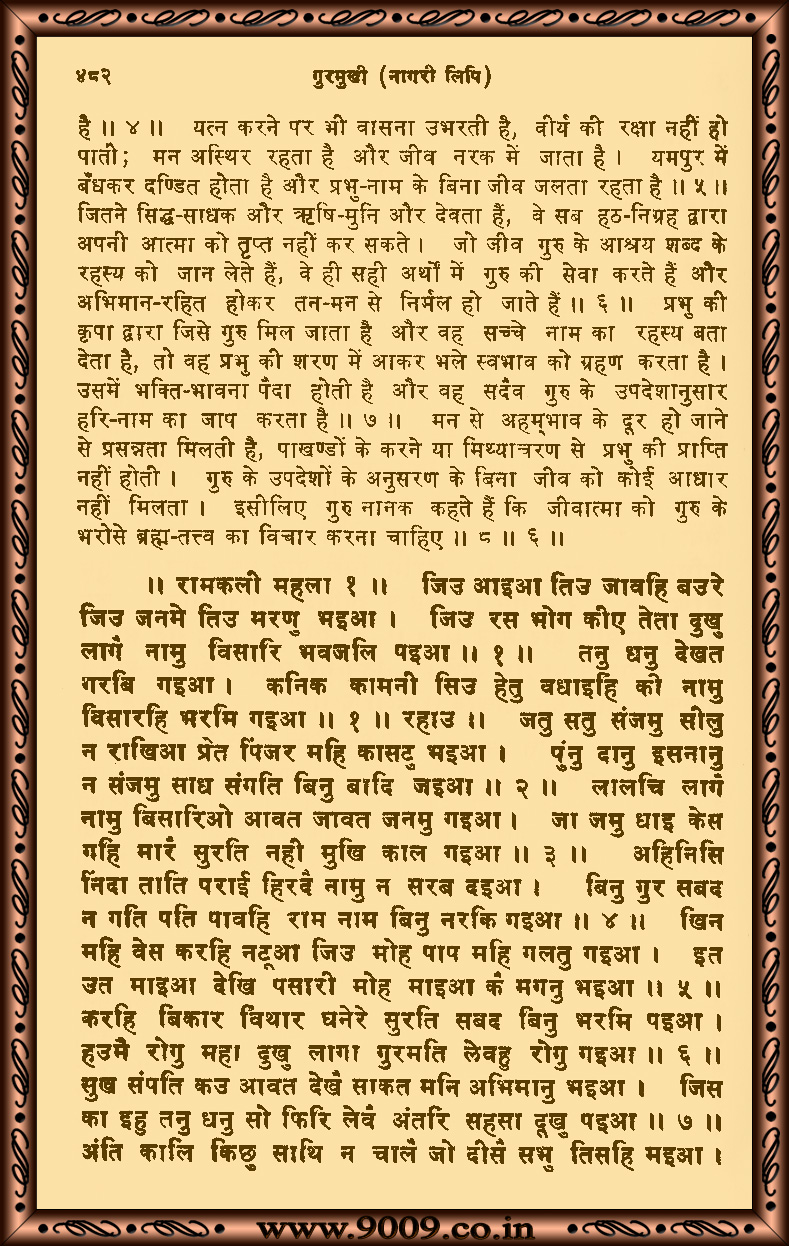 ४८२ गुरमुखी (नागरी लिपि)
है ॥ ४ ॥ यत्न करने पर भी वासना उभरती है, वीर्य की रक्षा नहीं हो
पाती; मन अस्थिर रहता है और जीव नरक में जाता है । यमपुर में
बँधकर दण्डित होता है और प्रभु-नाम के बिना जीव जलता रहता है ॥ ५ ॥
जितने सिद्ध-साधक और ऋषि-मुनि और देवता हैं, वे सब हठ-निग्रह द्वारा
अपनी आत्मा को तृप्त नहीं कर सकते । जो जीव गुरु के आश्रय शब्द के
रहस्य को जान लेते हैं, वे ही सही अर्थों में गुरु की सेवा करते हैं और
अभिमान-रहित होकर तन-मन से निर्मल हो जाते हैं ॥ ६ ॥ प्रभु की
कृपा द्वारा जिसे गुरु मिल जाता है और वह सच्चे नाम का रहस्य बता
देता है, तो वह प्रभु की शरण में आकर भले स्वभाव को ग्रहण करता है ।
उसमें भक्ति-भावना पैदा होती है और वह सदैव गुरु के उपदेशानुसार
हरि-नाम का जाप करता है ॥ ७ ॥ मन से अहम्‌भाव के दूर हो जाने
से प्रसन्नता मिलती है, पाखण्डों के करने या मिथ्याचरण से प्रभु की प्राप्ति
नहीं होती । गुरु के उपदेशों के अनुसरण के बिना जीव को कोई आधार
नहीं मिलता । इसीलिए गुरु नानक कहते हैं कि जीवात्मा को गुरु के
भरोसे ब्रह्म-तत्त्व का विचार करना चाहिए ॥ ८ ॥ ६ ॥
॥ रामकली महला १ ॥ जिउ आइआ तिउ जावहि बउरे
जिउ जनमे तिउ मरणु भइआ । जिउ रस भोग कीए तेता दुखु
लागै नामु विसारि भवजलि पइआ ॥ १ ॥ तनु धनु देखत
गरबि गइआ । कनिक कामनी सिउ हेतु वधाइहि की नामु
विसारहि भरमि गइआ ॥ १ ॥ रहाउ ॥ जतु सतु संजमु सीलु
न राखिआ प्रेत पिंजर महि कासटु भइआ । पुंनु दानु इसनानु
न संजमु साध संगति बिनु बादि जइआ ॥ २ ॥ लालचि लागै
नामु बिसारिओ आवत जावत जनमु गइआ । जा जमु धाइ केस
गहि मारै सुरति नही मुखि काल गइआ ॥ ३ ॥ अहिनिसि
निंदा ताति पराई हिरदै नामु न सरब दइआ । बिनु गुर सबद
न गति पति पावहि राम नाम बिनु नरकि गइआ ॥ ४ ॥ खिन
महि वेस करहि नटूआ जिउ मोह पाप महि गलतु गइआ । इत
उत माइआ देखि पसारी मोह माइआ कै मगनु भइआ ॥ ५ ॥
करहि बिकार विथार घनेरे सुरति सबद बिनु भरमि पइआ ।
हउमै रोगु महा दुखु लागा गुरमति लेवहु रोगु गइआ ॥ ६ ॥
सुख संपति कउ आवत देखै साकत मनि अभिमानु भइआ । जिस
का इहु तनु धनु सो फिरि लेवै अंतरि सहसा दूखु पइआ ॥ ७ ॥
अंति कालि किछु साथि न चालै जो दीसै सभु तिसहि मइआ ।
www.9009.co.in